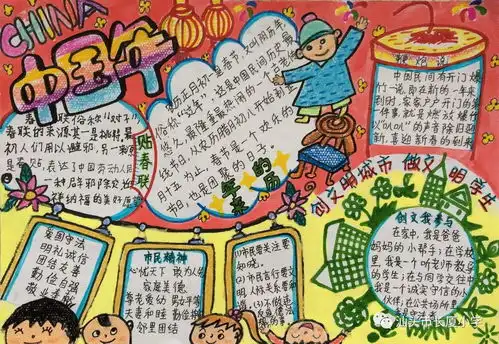 CHINA
中国年
春联俗称“对子”,
春联的来源其一是桃符,最
初人们用以避邪
表达了中国劳动人民
一种
祥的福的美好愿望
贴春联
农历正月初一是春节,又叫阴历年,
俗称“过年”,这是中国民间历史最
悠久、最隆重最热闹的一个传统
节日
是一个欢乐的
节日,也是团聚的日子。
年的
鞭炮
中国民间有开门爆
竹一说,即在新的一年来
到时,家家户户开门的第
一件事就是燃放爆竹
以
的声音除旧迎
新,喜迎新春的到来
创文明城市 做文明学生
爱国守法
明礼诚信
团结友善
勤俭自强
敬业奉献
市民精神
心忧天下 敢为人先
家庭美德
尊老爱幼 男女平等
夫妻和睦 勤俭持家
邻里团结
(1)市民要关注要
知晓。
(2)市民言行要文
明人际关系要和
谐。(3)不做违
反道德法
创文我参与
在家中,我是爸爸
妈妈的小帮手;在学校
里,我是一个听老师教导
的学生;在与同学交往中
我是一个诚实守信的小
伙伴;在公共场所里
我是
汕头市长厦小学